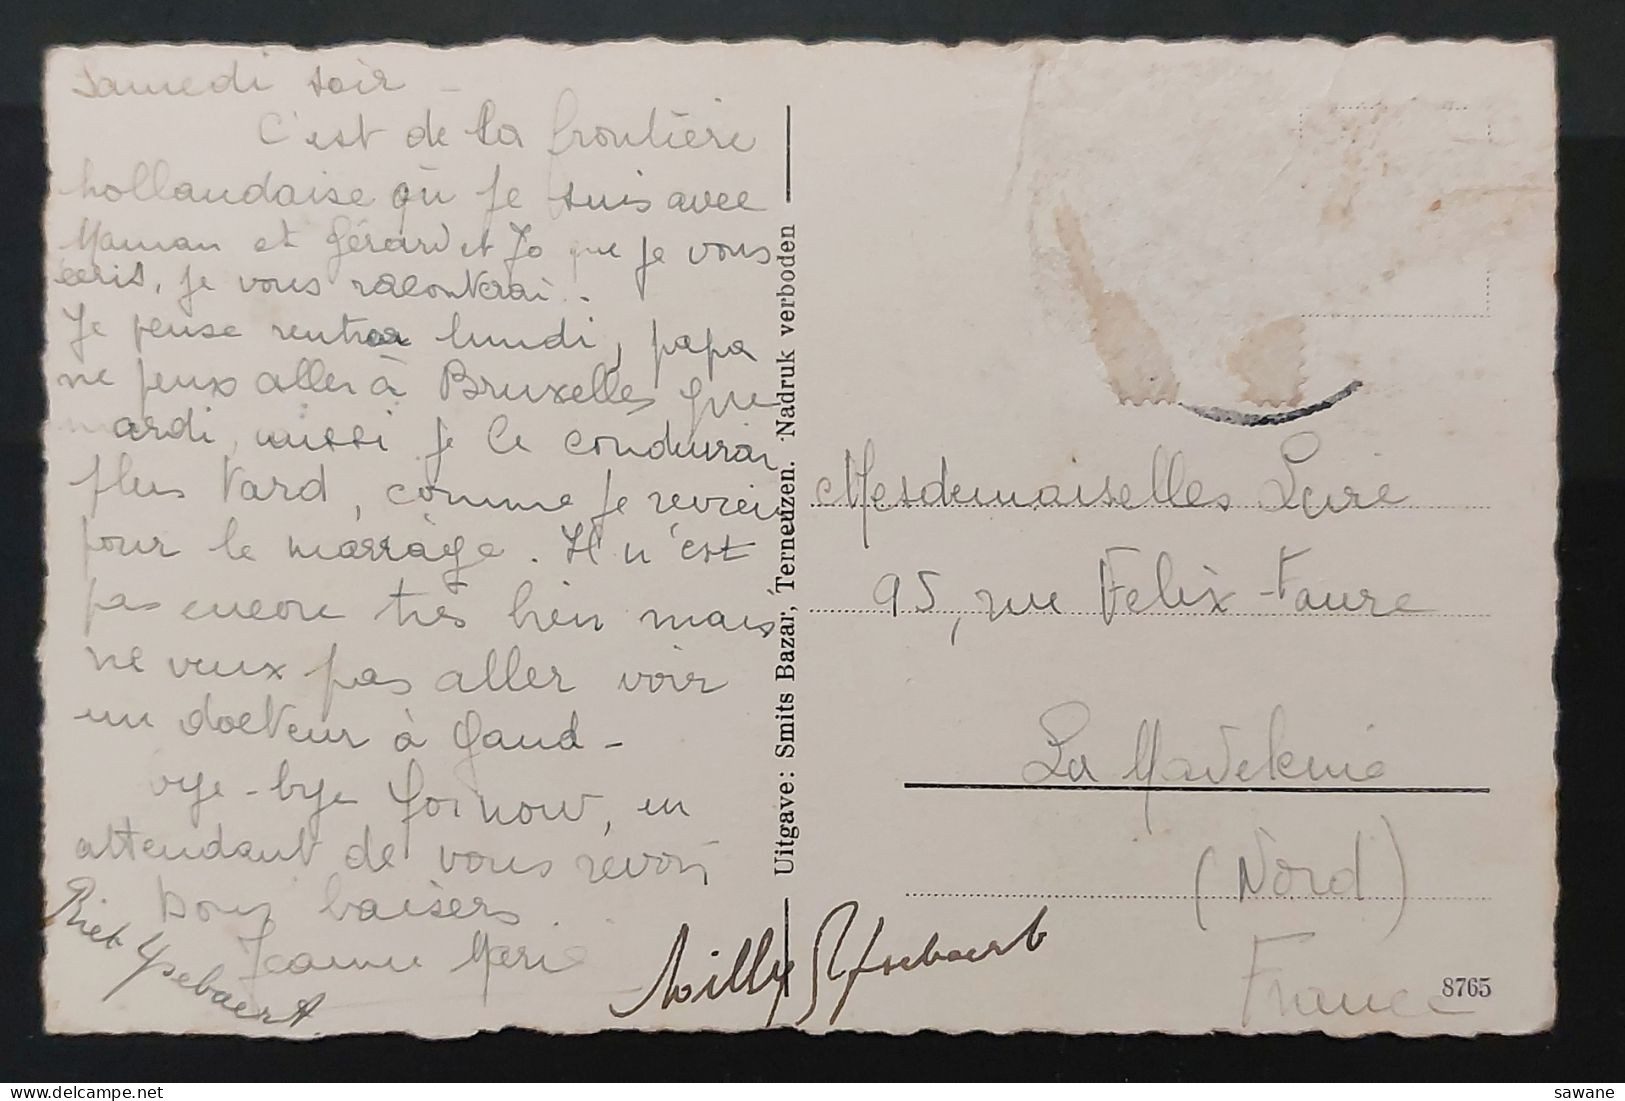 Samedi soir -
C'est de la frontière
hollandaise où je suis avec
Maman et Gérard et Jo que je vous
écris, je vous raconterai.
Je pense rentrer lundi, papa
ne peux aller à Bruxelles que
mardi, aussi je le conduirai
plus tard, comme je reviens
pour le mariage. Il n'est
pas encore très bien mais
ne veux pas aller voir
un docteur à Gand -
Bye-bye for now, en
attendant de vous revoir
Bons baisers.
Jeanne Marie
Riet Ysebaert
Willy Ysebaert
Uitgave: Smits Bazar, Terneuzen. Nadruk verboden
Mesdemoiselles Lyre
95, rue Felix-Faure
La Madeleine
(Nord)
France
8765
sawane